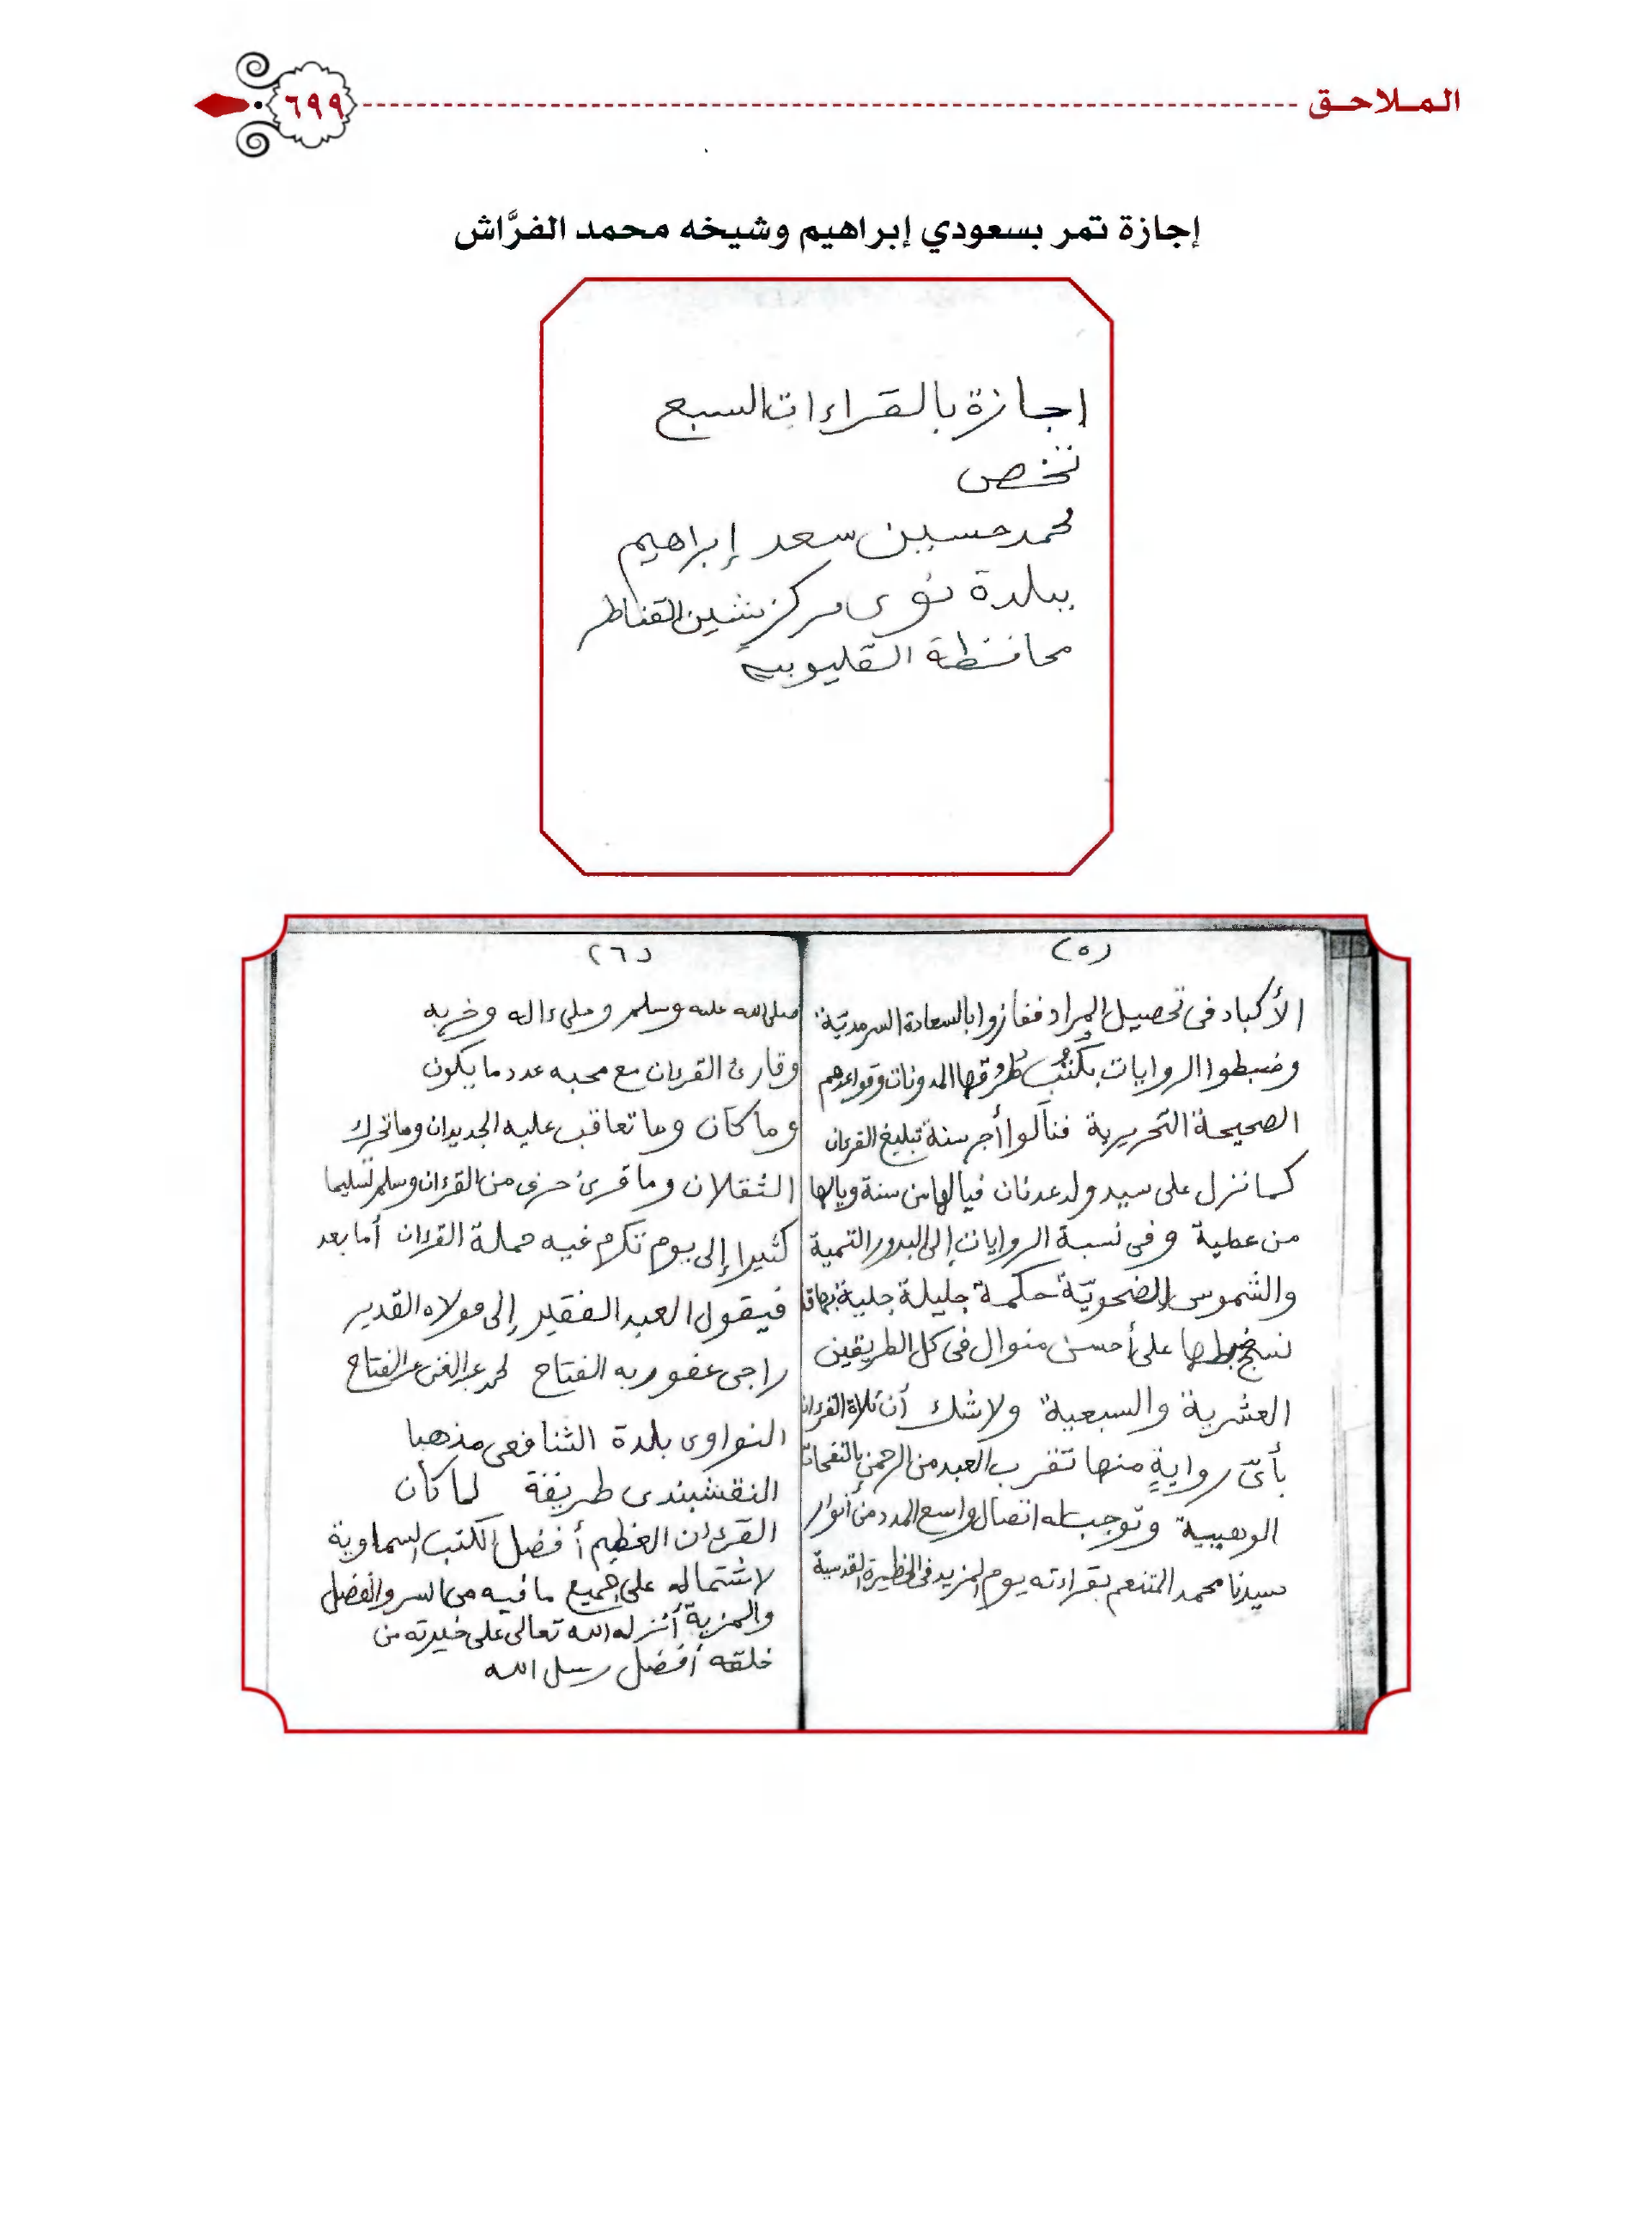 الملاحق
٦٩٩
إجازة تمر بسعودي إبراهيم وشيخه محمد الفرَّاش
اجازة بالقراءات السبع
تخص
محمد حسين سعد إبراهيم
ببلدة نوى مركز شبين القناطر
محافظة القليوبية
(٥)
الأكباد فى تحصيل المراد ففازوا بالسعادة السرمديّة
وضبطوا الروايات بكُتُب طرقها المدونات وقواعدهم
الصحيحة التحريرية فنالوا أجر سنة تبليغ القرءان
كما نزل على سيد ولد عدنان فيالها من سنة ويالها
من عطية وفى نسبة الروايات إلى البدور التمية
والشموس الضحويّة حكمة جليلة جلية بها قد
نسج ضبطها على أحسن منوال فى كل الطريقين
العشرية والسبعية ولا شك أن تلاة القرءان
بأىّ روايةٍ منها تقرب العبد من الرحمن بالنفحات
الوهبية وتوجب له اتصال واسع المدد من أنوار
سيدنا محمد المتنعم بقراءته يوم المزيد فى الحظيرة القدسية
(٦)
صلى الله عليه وسلم وعلى ءاله وحزبه
وقارئ القرءان مع محبه عدد ما يكون
وما كان وما تعاقب عليه الجديدان وما تحرك
الثقلان وما قرئ حرف من القرءان وسلم تسليما
كثيرا إلى يوم تكرم فيه حملة القرءان أما بعد
فيقول العبد الفقير إلى مولاه القدير
راجى عفو ربه الفتاح محمد عبد الغنى عبد الفتاح
النواوى بلدة الشافعى مذهبا
النقشبندى طريقة لما كان
القرءان العظيم أفضل الكتب السماوية
لاشتماله على جميع ما فيه من السر والفضل
والمزية أنزله الله تعالى على خيرته من
خلقه أفضل رسل الله